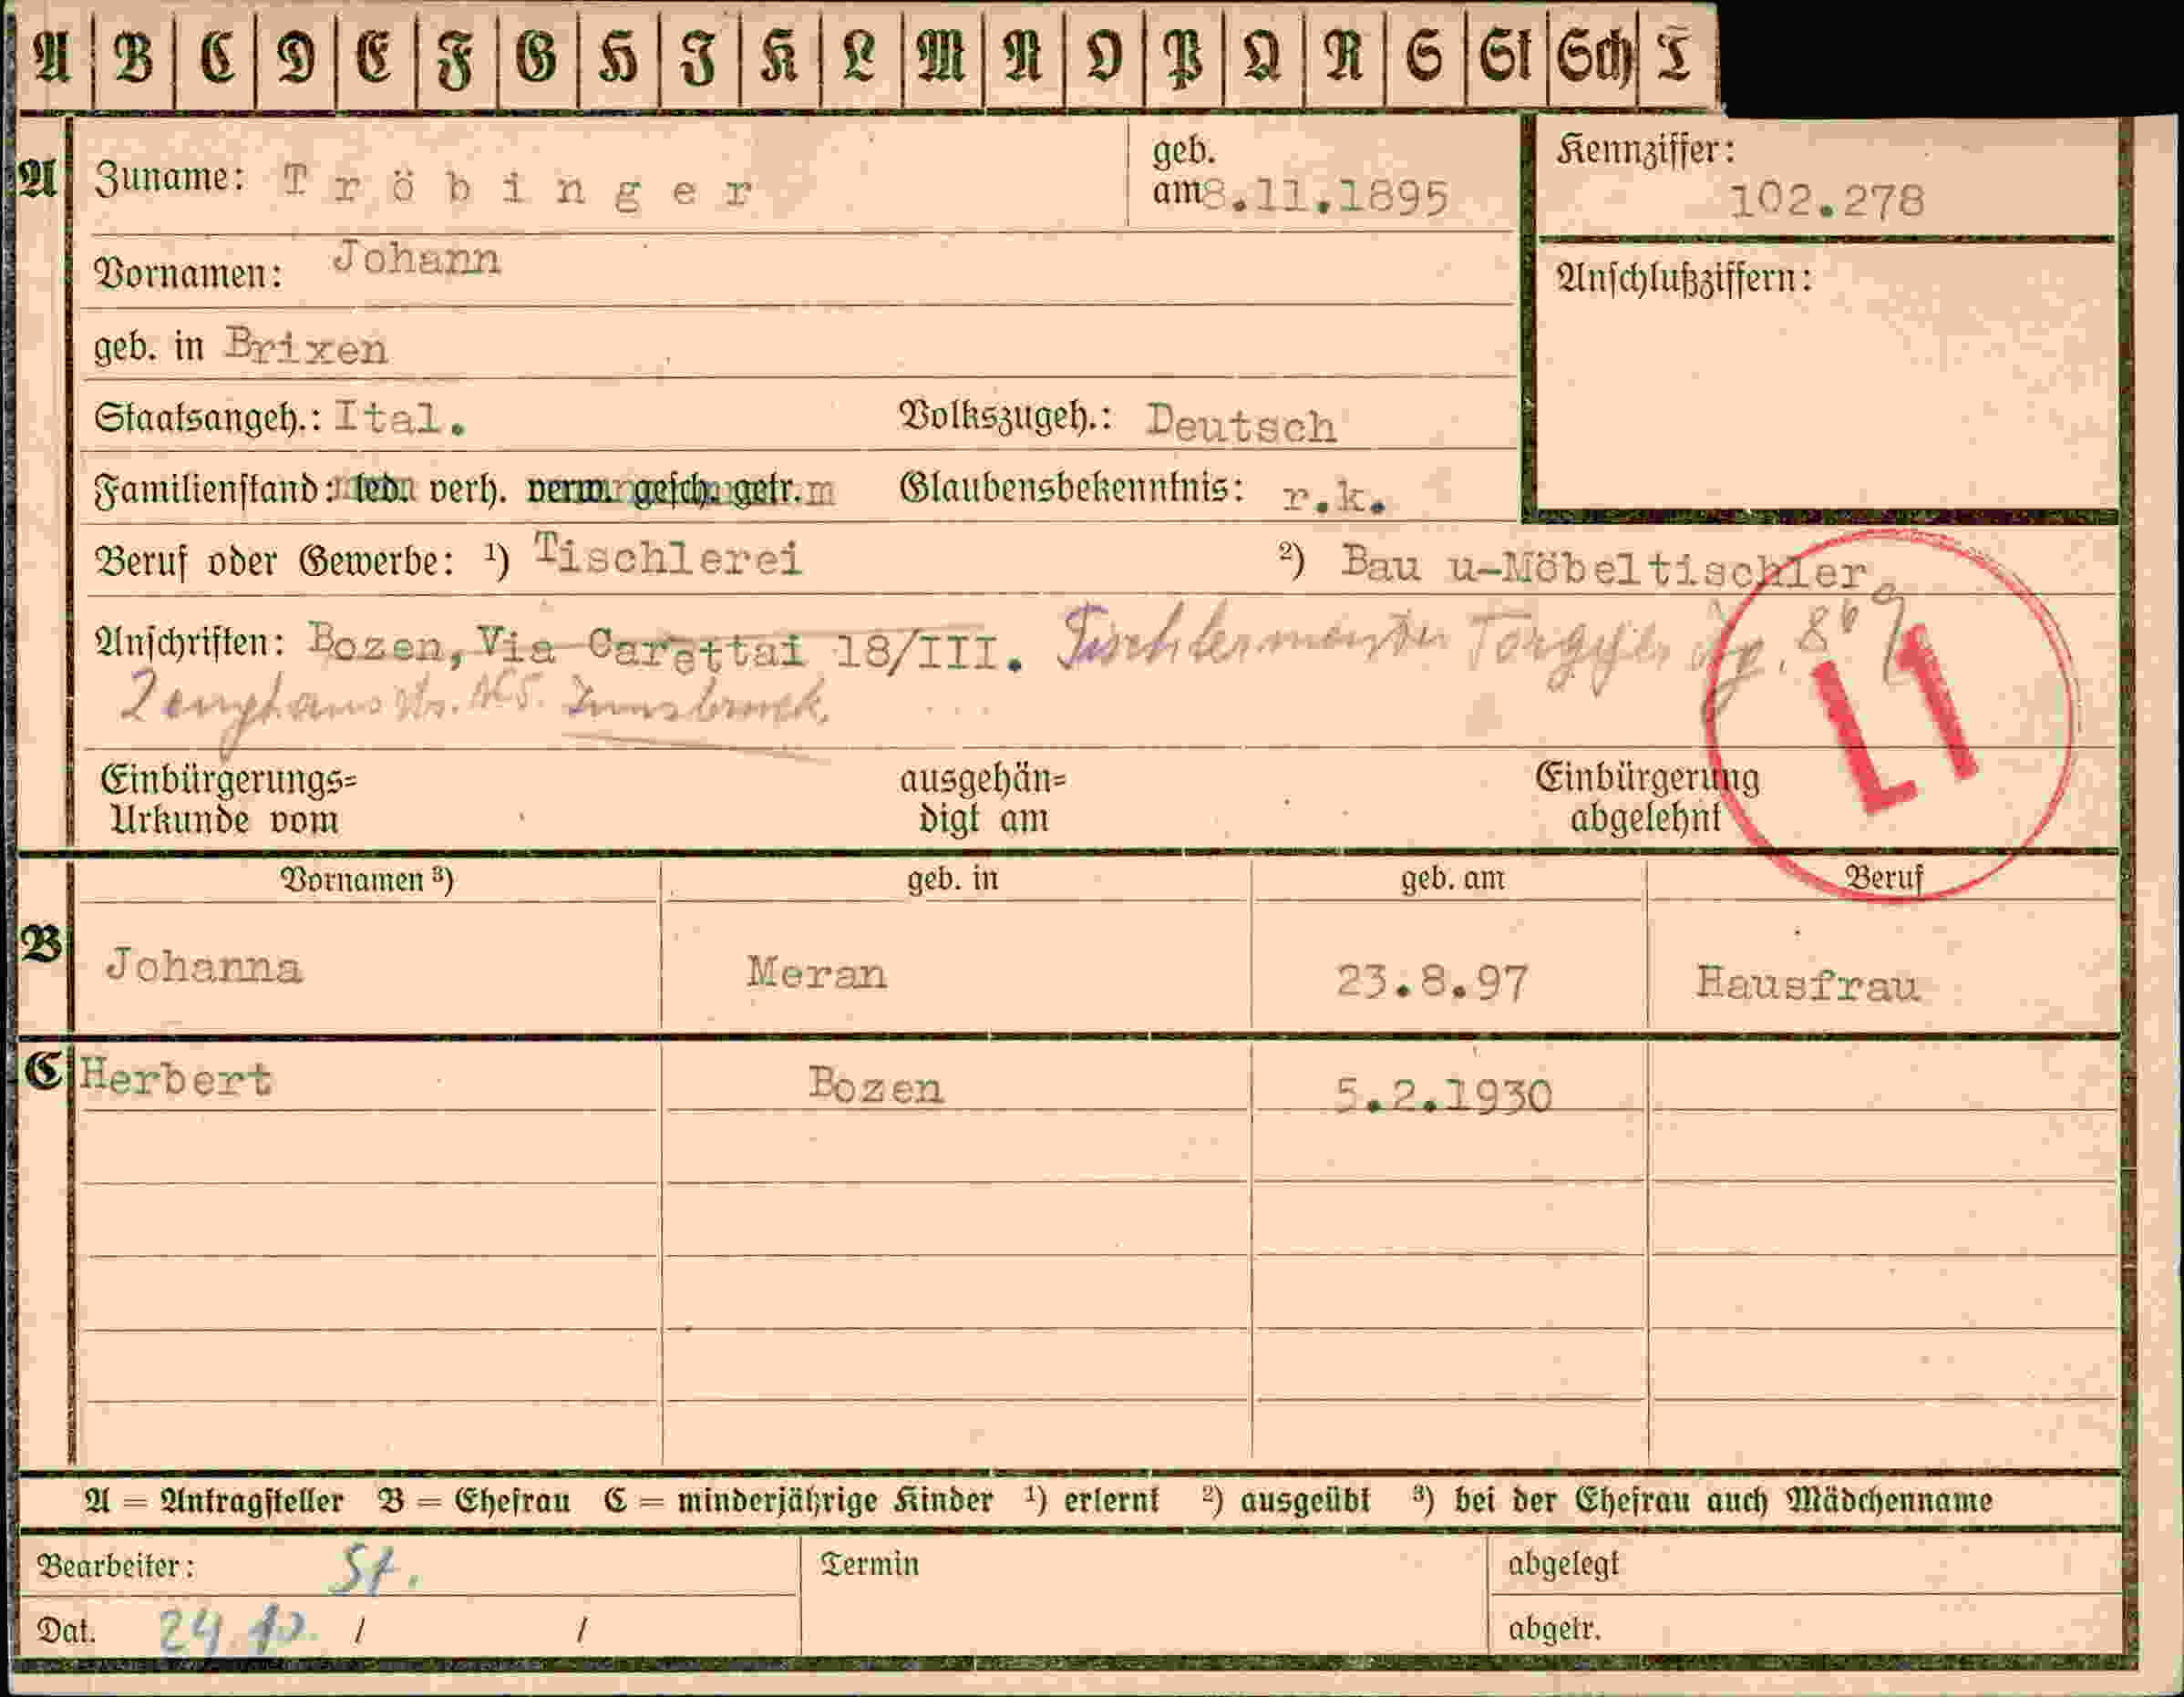 A B C D E F G H I K L M N O P Q R S St Sch T
A Zuname: Tröbinger geb. am 8.11.1895 Kennziffer: 102.278
Vornamen: Johann Anschlußziffern:
geb. in Brixen
Staatsangeh.: Ital. Volkszugeh.: Deutsch
Familienstand: led. verh. verw. gesch. getr. Glaubensbekenntnis: r.k.
Beruf oder Gewerbe: ¹) Tischlerei ²) Bau u-Möbeltischler
Anschriften: Bozen, Via Carettai 18/III. Tischlermeister
Zeughausstr. Innsbruck.
L1
Einbürgerungs= Urkunde vom ausgehän= digt am Einbürgerung abgelehnt
Vornamen ³) geb. in geb. am Beruf
B Johanna Meran 23.8.97 Hausfrau
C Herbert Bozen 5.2.1930
A = Antragsteller B = Ehefrau C = minderjährige Kinder ¹) erlernt ²) ausgeübt ³) bei der Ehefrau auch Mädchenname
Bearbeiter: St. Termin abgelegt
Dat. 24 10. / / abgetr.